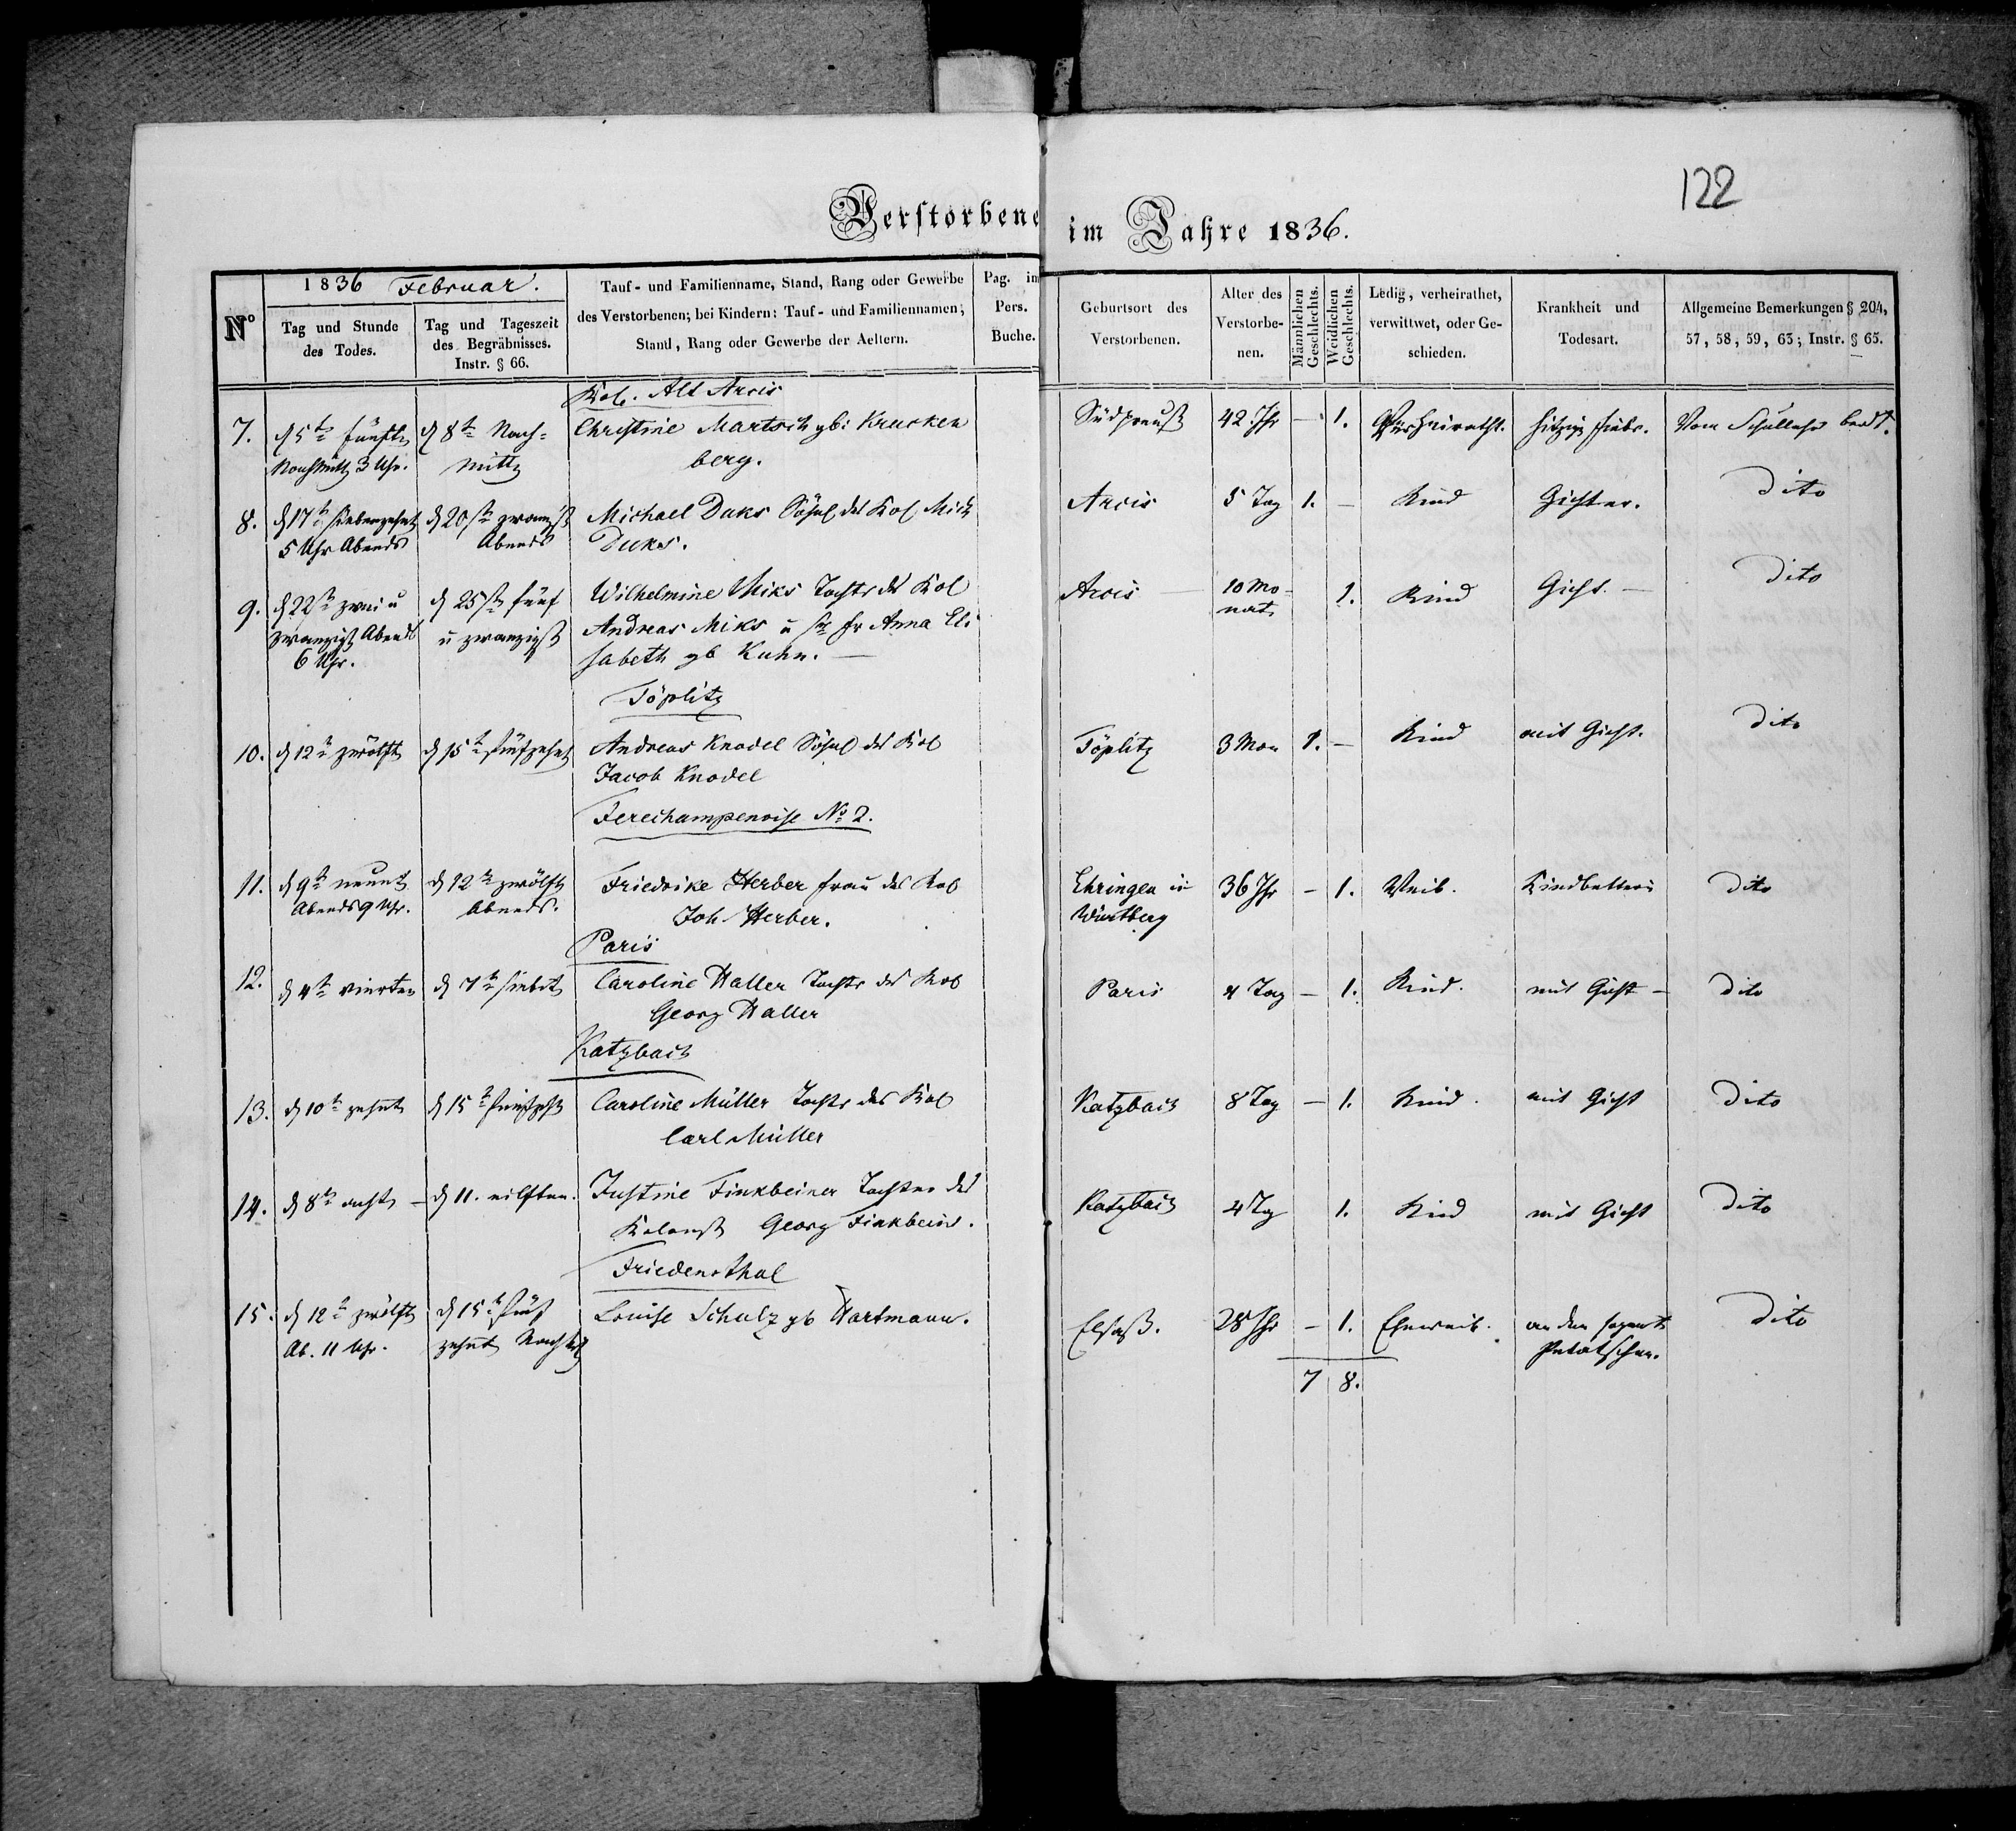 122
Verstorbene im Jahre 1836.
No
1836 Februar.
Tag und Stunde des Todes.
Tag und Tageszeit des Begräbnisses. Instr. § 66.
Tauf- und Familienname, Stand, Rang oder Gewerbe
des Verstorbenen; bei Kindern: Tauf- und Familiennamen;
Stand, Rang oder Gewerbe der Aeltern.
Pag. im Pers. Buche.
Geburtsort des Verstorbenen.
Alter des Verstorbenen.
Männlichen Geschlechts.
Weidlichen Geschlechts.
Ledig, verheirathet, verwittwet, oder Geschieden.
Krankheit und Todesart.
Allgemeine Bemerkungen § 204,
57, 58, 59, 63; Instr. § 65.
Kol. Alt Arcis
7. d 5te fünften d 8t Nach= Christine Martsch gb: Krucken Südpreuß 42 Jhr — 1. Verheirathet. hitzig Fieber. Vom Schullehr beerd.
Nachmittg 3 Uhr. mittg berg.
8. d 17t siebenzehnt d 20st zwanzigst Michael Duks Söhnl des Kol Mich Arcis 5 Tag 1. — Kind Gichter. Dito
5 Uhr Abends Abends Duks.
9. d 22st zwei u d 25st fünf Wilhelmine Miks Tochtr des Kol Arcis 10 Mo- 1. Kind Gicht. — Dito
zwanzigst Abends u zwanzigst Andreas Miks u sr Fr Anna Eli nat
6 Uhr. sabeth gb Kuhn. —
Töplitz
10. d 12t zwölft d 15t fünfzehnt Andreas Knodel Söhnl des Kol Töplitz 3 Mon 1. — Kind mit Gicht. Dito
Jacob Knodel
Ferechampenoise No 2.
11. d 9t neunt d 12t zwölft Friedrike Herber Frau des Kol Ehringen in 36 Jhr — 1. Weib. Kindbetterin Dito
Abends 9 Uhr. Abends. Joh Herber. Würtberg
Paris
12. d 4t vierten d 7t siebent Caroline Haller Tochtr des Kol Paris 4 Tag — 1. Kind. mit Gicht — Dito
Georg Haller
Katzbach
13. d 10t zehnt d 15t fünfzehnt Caroline Müller Tochtr des Kol Katzbach 8 Tag — 1. Kind. mit Gicht Dito
Carl Müller
14. d 8t acht — d 11. eilften. Justine Finkbeiner Tochter des Katzbach 4 Tg 1. Kind mit Gicht Dito
Kolonist Georg Finkbeinr.
Friedensthal
15. d 12t zwölft d 15t fünf Louise Schulz gb Hartmann. Elsaß. 28 Jhr — 1. Eheweib. an den sogenante Dito
Ab. 11 Uhr. zehnt Nachmittg Petatschen.
7 8.